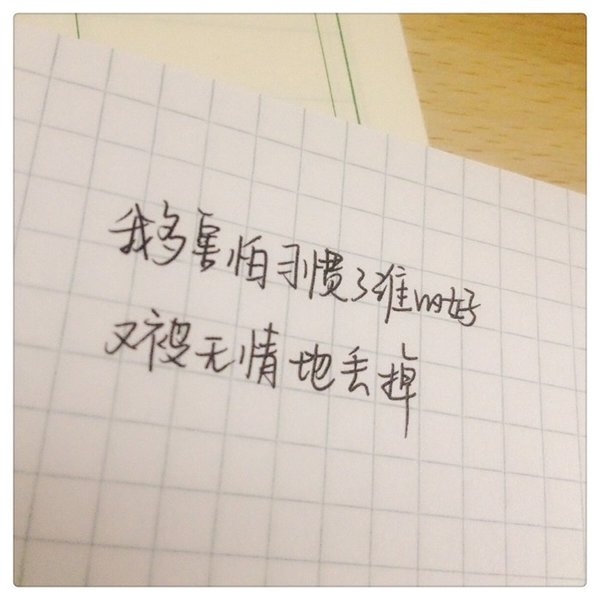 我多害怕习惯了谁的好
又被无情地丢掉